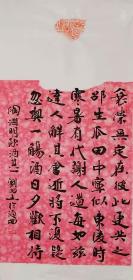 衰榮無定在彼此更共之
邵生瓜田中寧似東陵時
寒暑有代謝人道每如茲
達人解其會逝將不復疑
忽與一觴酒日夕歡相持
陶淵明飲酒其一